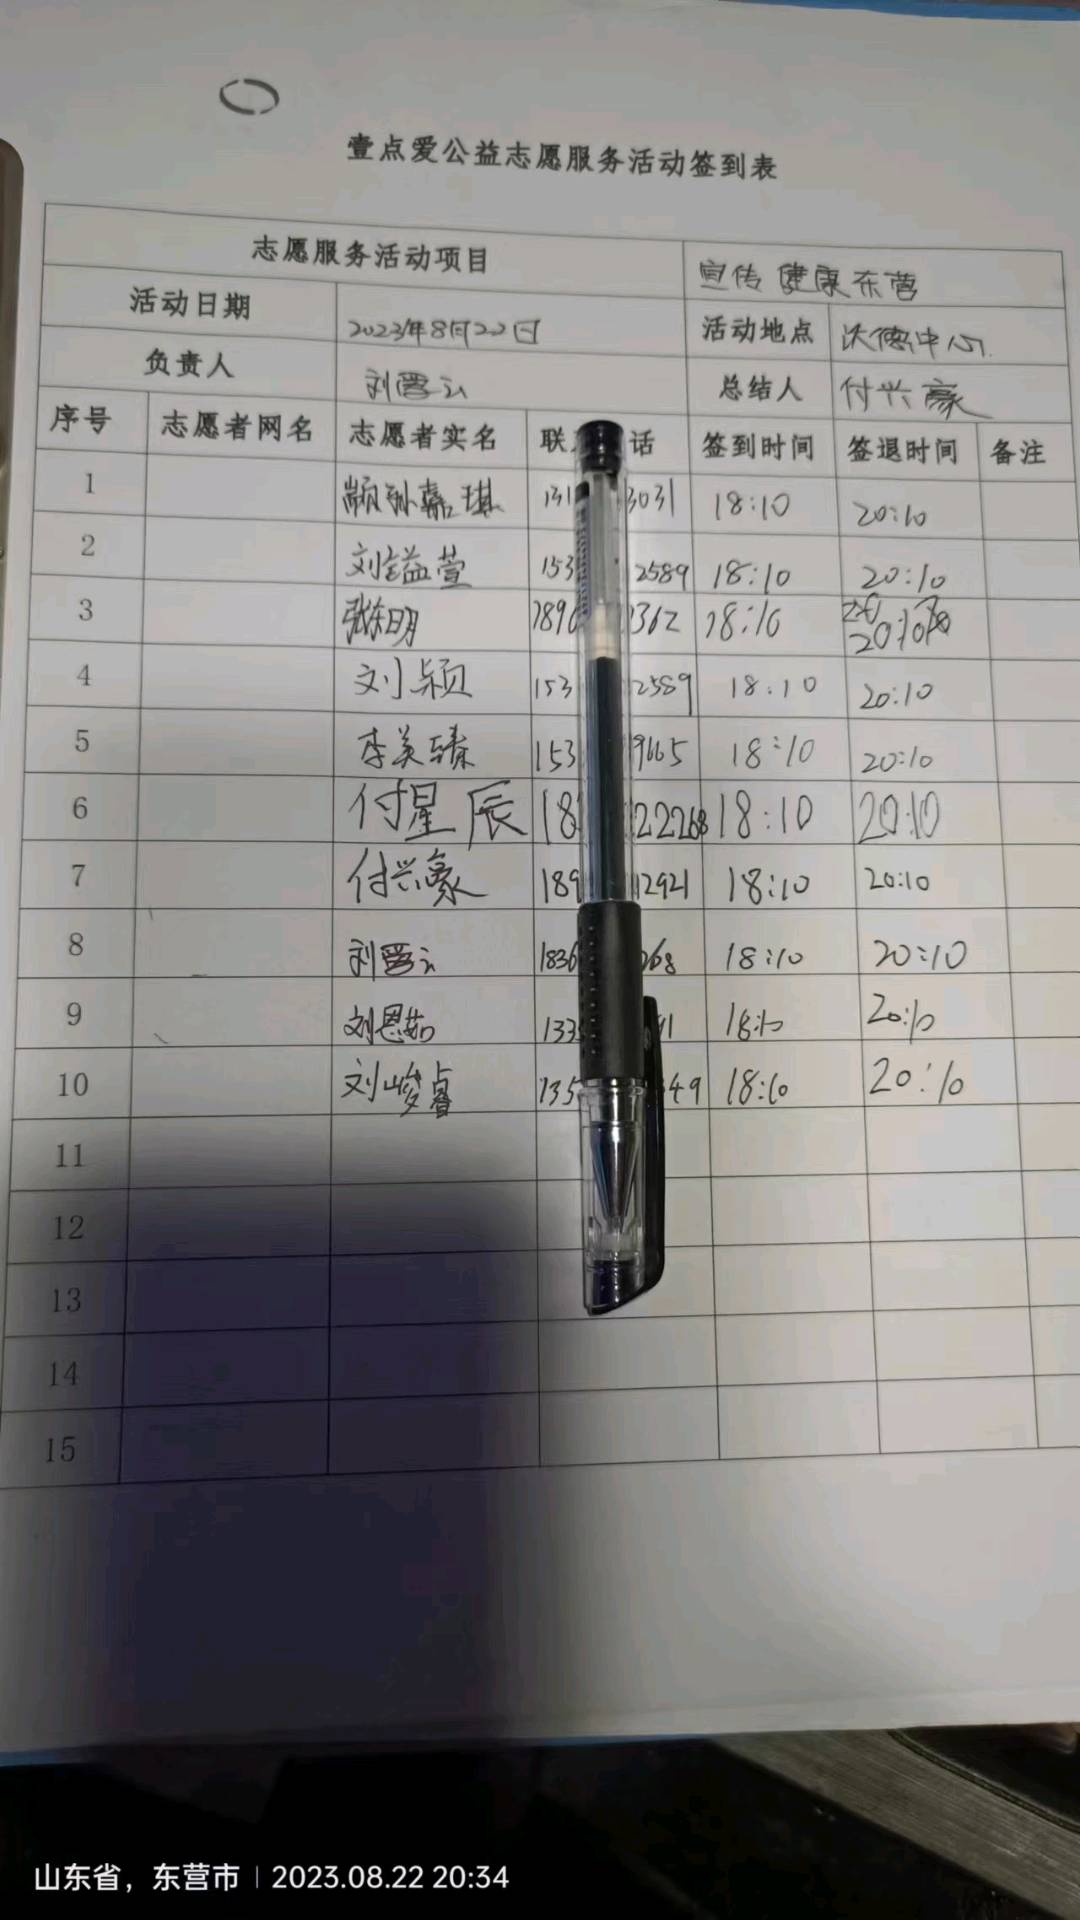 壹点爱公益志愿服务活动签到表
志愿服务活动项目 宣传 健康东营
活动日期 2023年8月22日 活动地点 沃德中心
负责人 刘云 总结人 付兴豪
序号 志愿者网名 志愿者实名 联 话 签到时间 签退时间 备注
1 颛孙嘉琪 131 3031 18:10 20:10
2 刘镒萱 153 2589 18:10 20:10
3 张东明 189 1362 18:10 20:10
4 刘颖 153 2589 18:10 20:10
5 李美臻 153 9665 18:10 20:10
6 付星辰 18 222268 18:10 20:10
7 付兴豪 189 12921 18:10 20:10
8 刘云 1836 268 18:10 20:10
9 刘恩茹 133 91 18:10 20:10
10 刘峻睿 135 349 18:10 20:10
11
12
13
14
15
山东省，东营市 | 2023.08.22 20:34